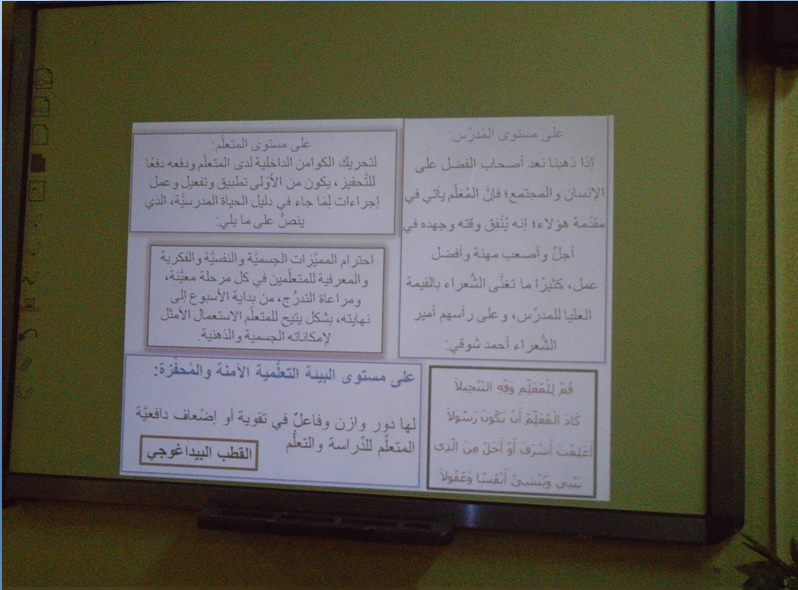 على مستوى المُدرِّس:
إذا ذهبنا نعد أصحاب الفضل على
الإنسان والمجتمع؛ فإنَّ المُعلِّم يأتي في
مقدِّمة هؤلاء؛ إنه يُنْفِق وقته وجهده في
أجلِّ وأصعب مهنة وأفضل
عمل، كثيرًا ما تغنَّى الشُّعراء بالقيمة
العليا للمدرِّس، وعلى رأسهم أمير
الشُّعراء أحمد شوقي:
قُمْ لِلْمُعَلِّمِ وَفِّهِ التَّبْجِيلاَ
كَادَ الْمُعَلِّمُ أَنْ يَكُونَ رَسُولاَ
أَعَلِمْتَ أَشْرَفَ أَوْ أَجَلَّ مِنَ الَّذِي
يَبْنِي وَيُنْشِئُ أَنْفُسًا وَعُقُولاَ
على مستوى المتعلِّم:
لتحريك الكوامن الداخلية لدى المتعلِّم ودفعه دفعًا
للتَّحفيز، يكون من الأَوْلى تطبيق وتفعيل وعمل
إجراءات لِمَا جاء في دليل الحياة المدرسيَّة، الذي
ينصُّ على ما يلي:
احترام المميِّزات الجسميَّة والنفسيَّة والفكرية
والمعرفية للمتعلِّمين في كل مرحلة معيَّنة،
ومراعاة التدرُّج، من بداية الأسبوع إلى
نهايته، بشكل يتيح للمتعلِّم الاستعمال الأمثل
لإمكاناته الجسمية والذهنية.
على مستوى البيئة التعلُّمية الآمنة والمُحفِّزة:
لها دور وازن وفاعلٌ في تقوية أو إضْعاف دافعيَّة
المتعلِّم للدِّراسة والتعلُّم
القطب البيداغوجي